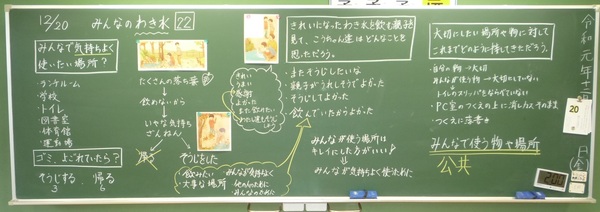 12/20
みんなのわき水 22
みんなで気持ちよく
使いたい場所?
・ランチルーム
・学校
・トイレ
・図書室
・体育館
・運動場
ゴミ、よごれていたら?
そうじする 帰る
3 6
たくさんの落ち葉
飲めないから
いやな気持ち
ざんねん
帰る
そうじをした
飲みたい
大事な場所
みんなが気持ちよく
他の人のために
みんなのために
きれい
うまい
感謝
よかった
また飲みたい
きれいになったわき水を飲む親子を
見て、こうのしん達はどんなことを
思っただろう。
・またそうじしたいな
・親子がうれしそうでよかった
・そうじしてよかった
・飲んでいたからよかった
みんなが使う場所は
キレイにした方がいい!
みんなが気持ちよく使うために
大切にしたい場所や物に対して
これまでどのように接してきただろう。
・自分の物→大切
みんなが使う物→大切にしていない
・トイレのスリッパをならべていない
・PC室のつくえの上に消しカスそのまま
・つくえに落書き
みんなで使う物や場所
公共
令和元年十二月
20
日(金)